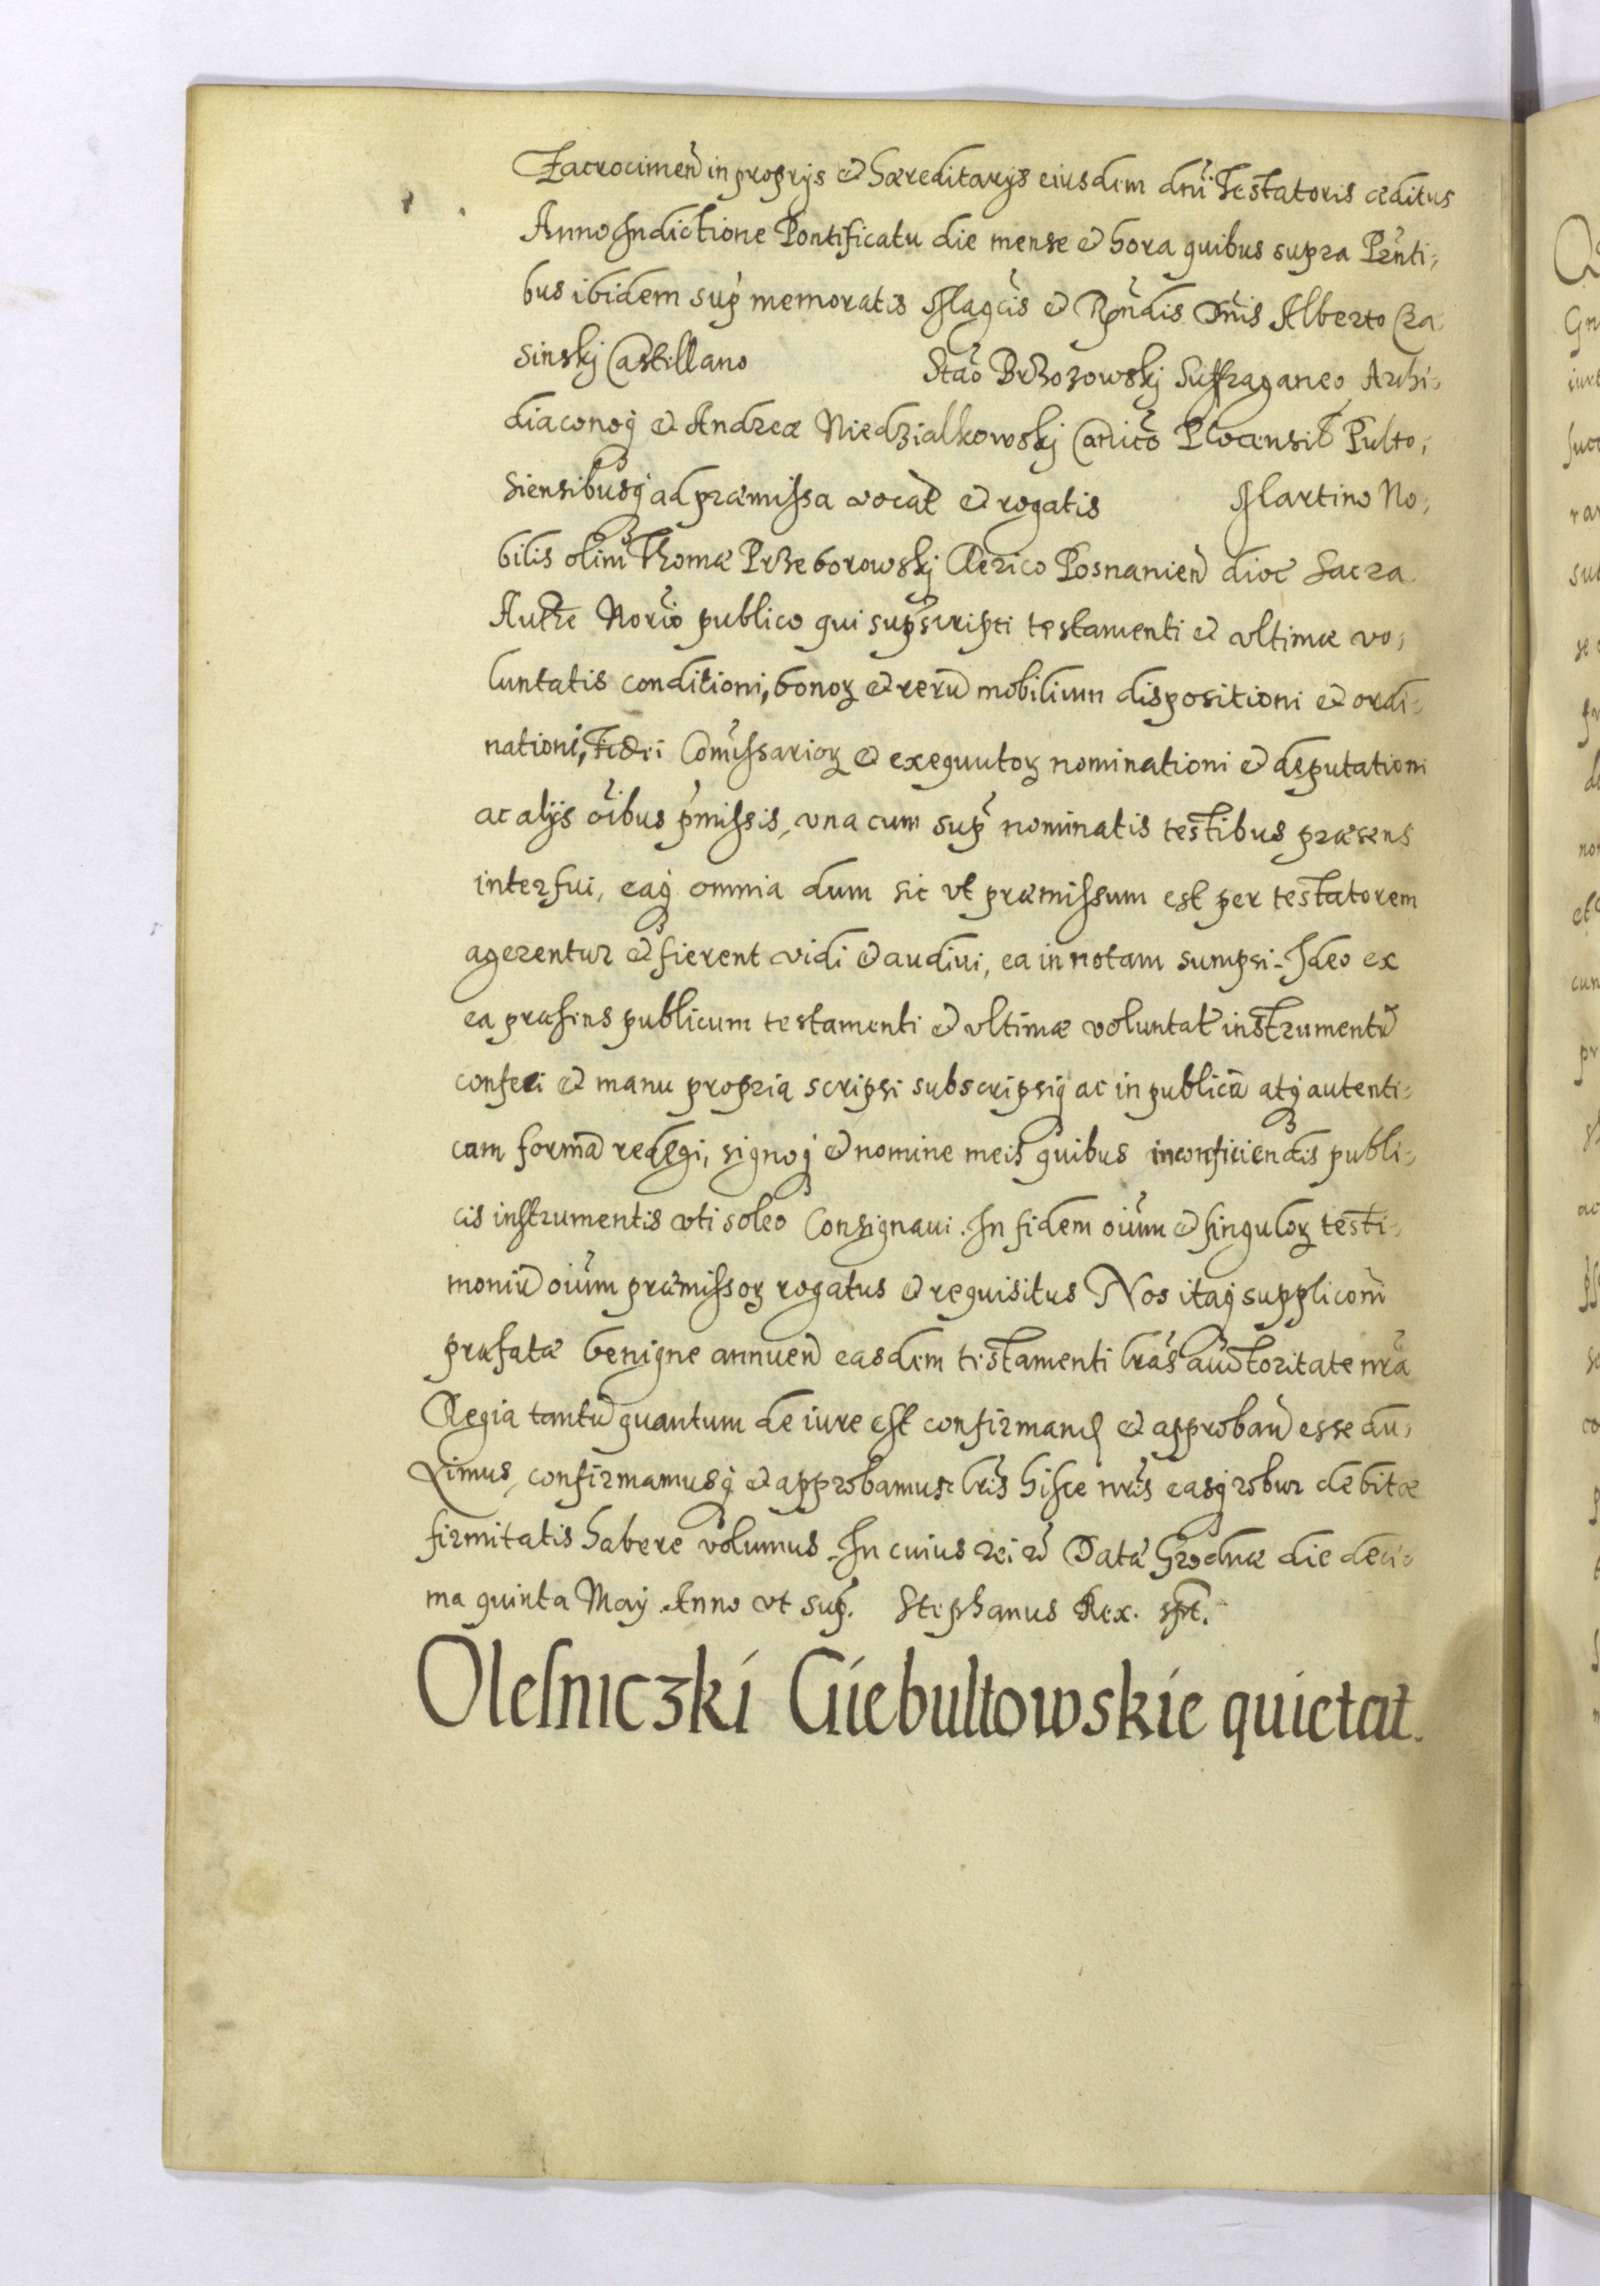 Zacrocimeñ in proprijs et hæreditarijs eiusdem dñi Testatoris æditus
Anno Indictione Pontificatu die mense et hora quibus supra Pñti,
bus ibidem sup memoratis Magcis et Rñdis Dñis Alberto Cra
sinskj Castillano Stão Brzozowskj Suffraganeo, Archi,
diaconoq et Andreæ Niedzialkowskj Canico Plocensib Pulto,
siensibusq ad præmissa vocat et rogatis Martino No,
bilis olim Thomæ Przeborowskj Clerico Posnanieñ dioc Sacra
Authe Norio publico qui supscripti testamenti et vltimæ vo,
luntatis conditioni, bonoꝝ et rerũ mobilium dispositioni et ordi,
nationi, Fidei Comissarioꝝ et exequutoꝝ nominationi et deputationi
ac alijs oibus pmissis, vna cum sup nominatis testibus præsens
interfui, eaq omnia dum sic vt præmissum est per testatorem
agerentur et fierent vidi et audiui, ea in notam sumpsi. Ideo ex
ea præsens publicum testamenti et vltimæ voluntat instrumentũ
confeci et manu propria scripsi subscripsiq ac in publicã atq autenti,
cam formã redegi, signoq et nomine meis quibus in conficiendis publi,
cis instrumentis vti soleo Consignaui. In fidem oium et singuloꝝ testi,
moniũ oium præmissoꝝ rogatus et requisitus Nos itaq suppliconi
præfatæ benigne annueñ easdem testamenti lras auctoritate nra
Regia tantũ quantum de iure est confirmand et approbañ esse du,
ximus, confirmamusq et approbamus lris hisce nris easq robur debitæ
firmitatis habere volumus. In cuius rei Dat Grodnæ die deci,
ma quinta Maij Anno vt sup. Stephanus Rex. sst.
Olesniczki Giebultowskie quietat.